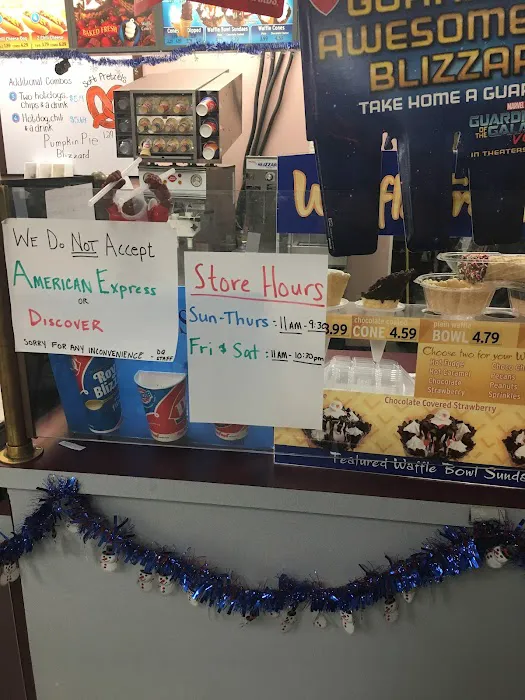 BAKED FRESH
Waffle Bowl Sundaes
Additional Combos
Soft Pretzels
① Two holidogs,
chips & a drink
② Holidog, chili
& a drink
Pumpkin Pie
Blizzard
AWESOME
BLIZZAR
TAKE HOME A GUAR
MARVEL
GUARDIANS
OF THE GALA
IN THEATERS
WE DO NOT ACCEPT
AMERICAN EXPRESS
OR
DISCOVER
SORRY FOR ANY INCONVENIENCE - DQ STAFF
Store Hours
Sun-Thurs : 11AM - 9:30
Fri & Sat : 11AM - 10:30pm
3.99
chocolate
CONE 4.59
plain waffle
BOWL 4.79
Choose two for your W
Hot Fudge
Hot Caramel
Chocolate
Strawberry
Pecans
Peanuts
Sprinkles
Chocolate Covered Strawberry
Featured Waffle Bowl Sunda